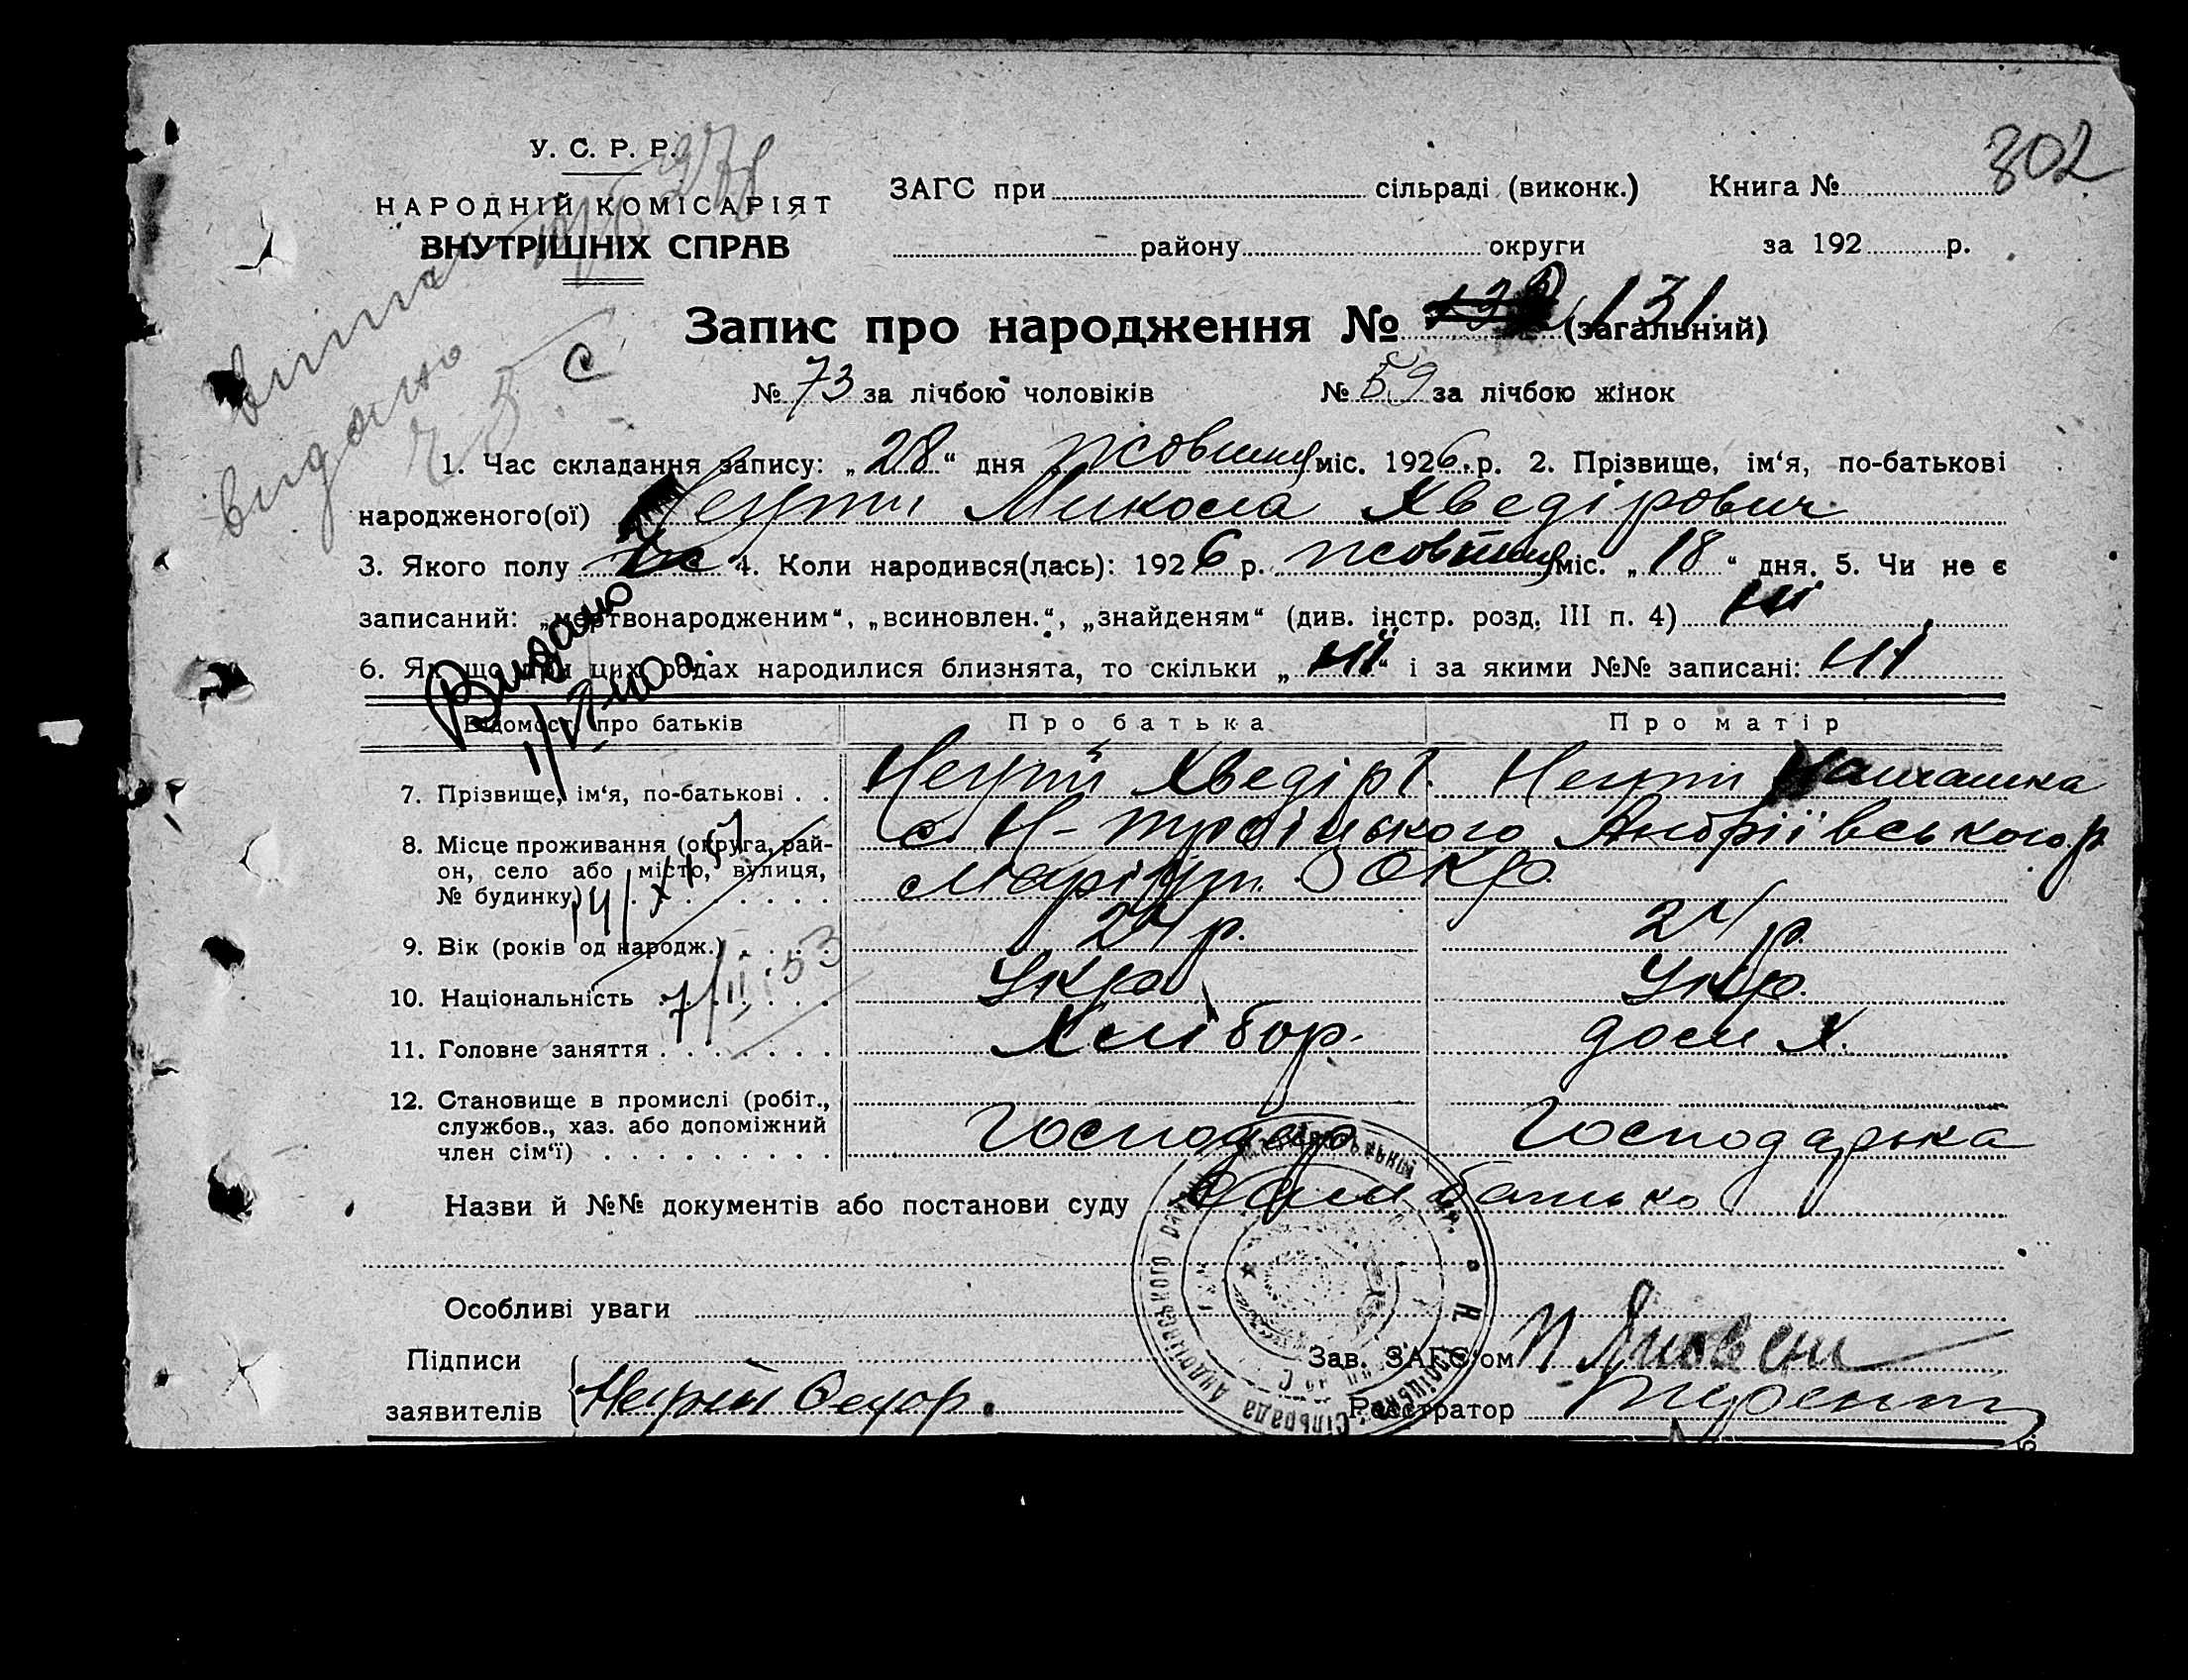 302
У. С. Р. Р.
НАРОДНІЙ КОМІСАРІЯТ
ВНУТРІШНІХ СПРАВ
ЗАГС при сільраді (виконк.) Книга №
району округи за 192 р.
видано
Запис про народження № 131 (загальний)
№ 73 за лічбою чоловіків № 59 за лічбою жінок
1. Час складання запису: „28“ дня жовтня міс. 1926 р. 2. Прізвище, ім‘я, по-батькові
народженого(ої) Микола Хведірович
3. Якого полу 4. Коли народився(лась): 1926 р. жовтня міс. „18“ дня. 5. Чи не є
записаний: „мертвонародженим“, „всиновлен.“, „знайденям“ (див. інстр. розд. III п. 4) ні
6. Як що при цих родах народилися близнята, то скільки „ні“ і за якими №№ записані: ні
Видано
Відомості про батьків Про батька Про матір
7. Прізвище, ім‘я, по-батькові . . Хведір
8. Місце проживання (округа, рай-
он, село або місто, вулиця,
№ будинку)
с. Н-Троіцького Андріївського р
Маріуп. Окр.
14/X 57
9. Вік (років од народж.) 24 р. 24 р.
7/II 53
10. Національність Укр. Укр.
11. Головне заняття Хлібор. дом. х.
12. Становище в промислі (робіт.,
службов., хаз. або допоміжний
член сім‘ї)
Господар Господарька
Назви й №№ документів або постанови суду Сам батько
Особливі уваги
Підписи
заявителів Федор.
Зав. ЗАГС‘ом
Реєстратор